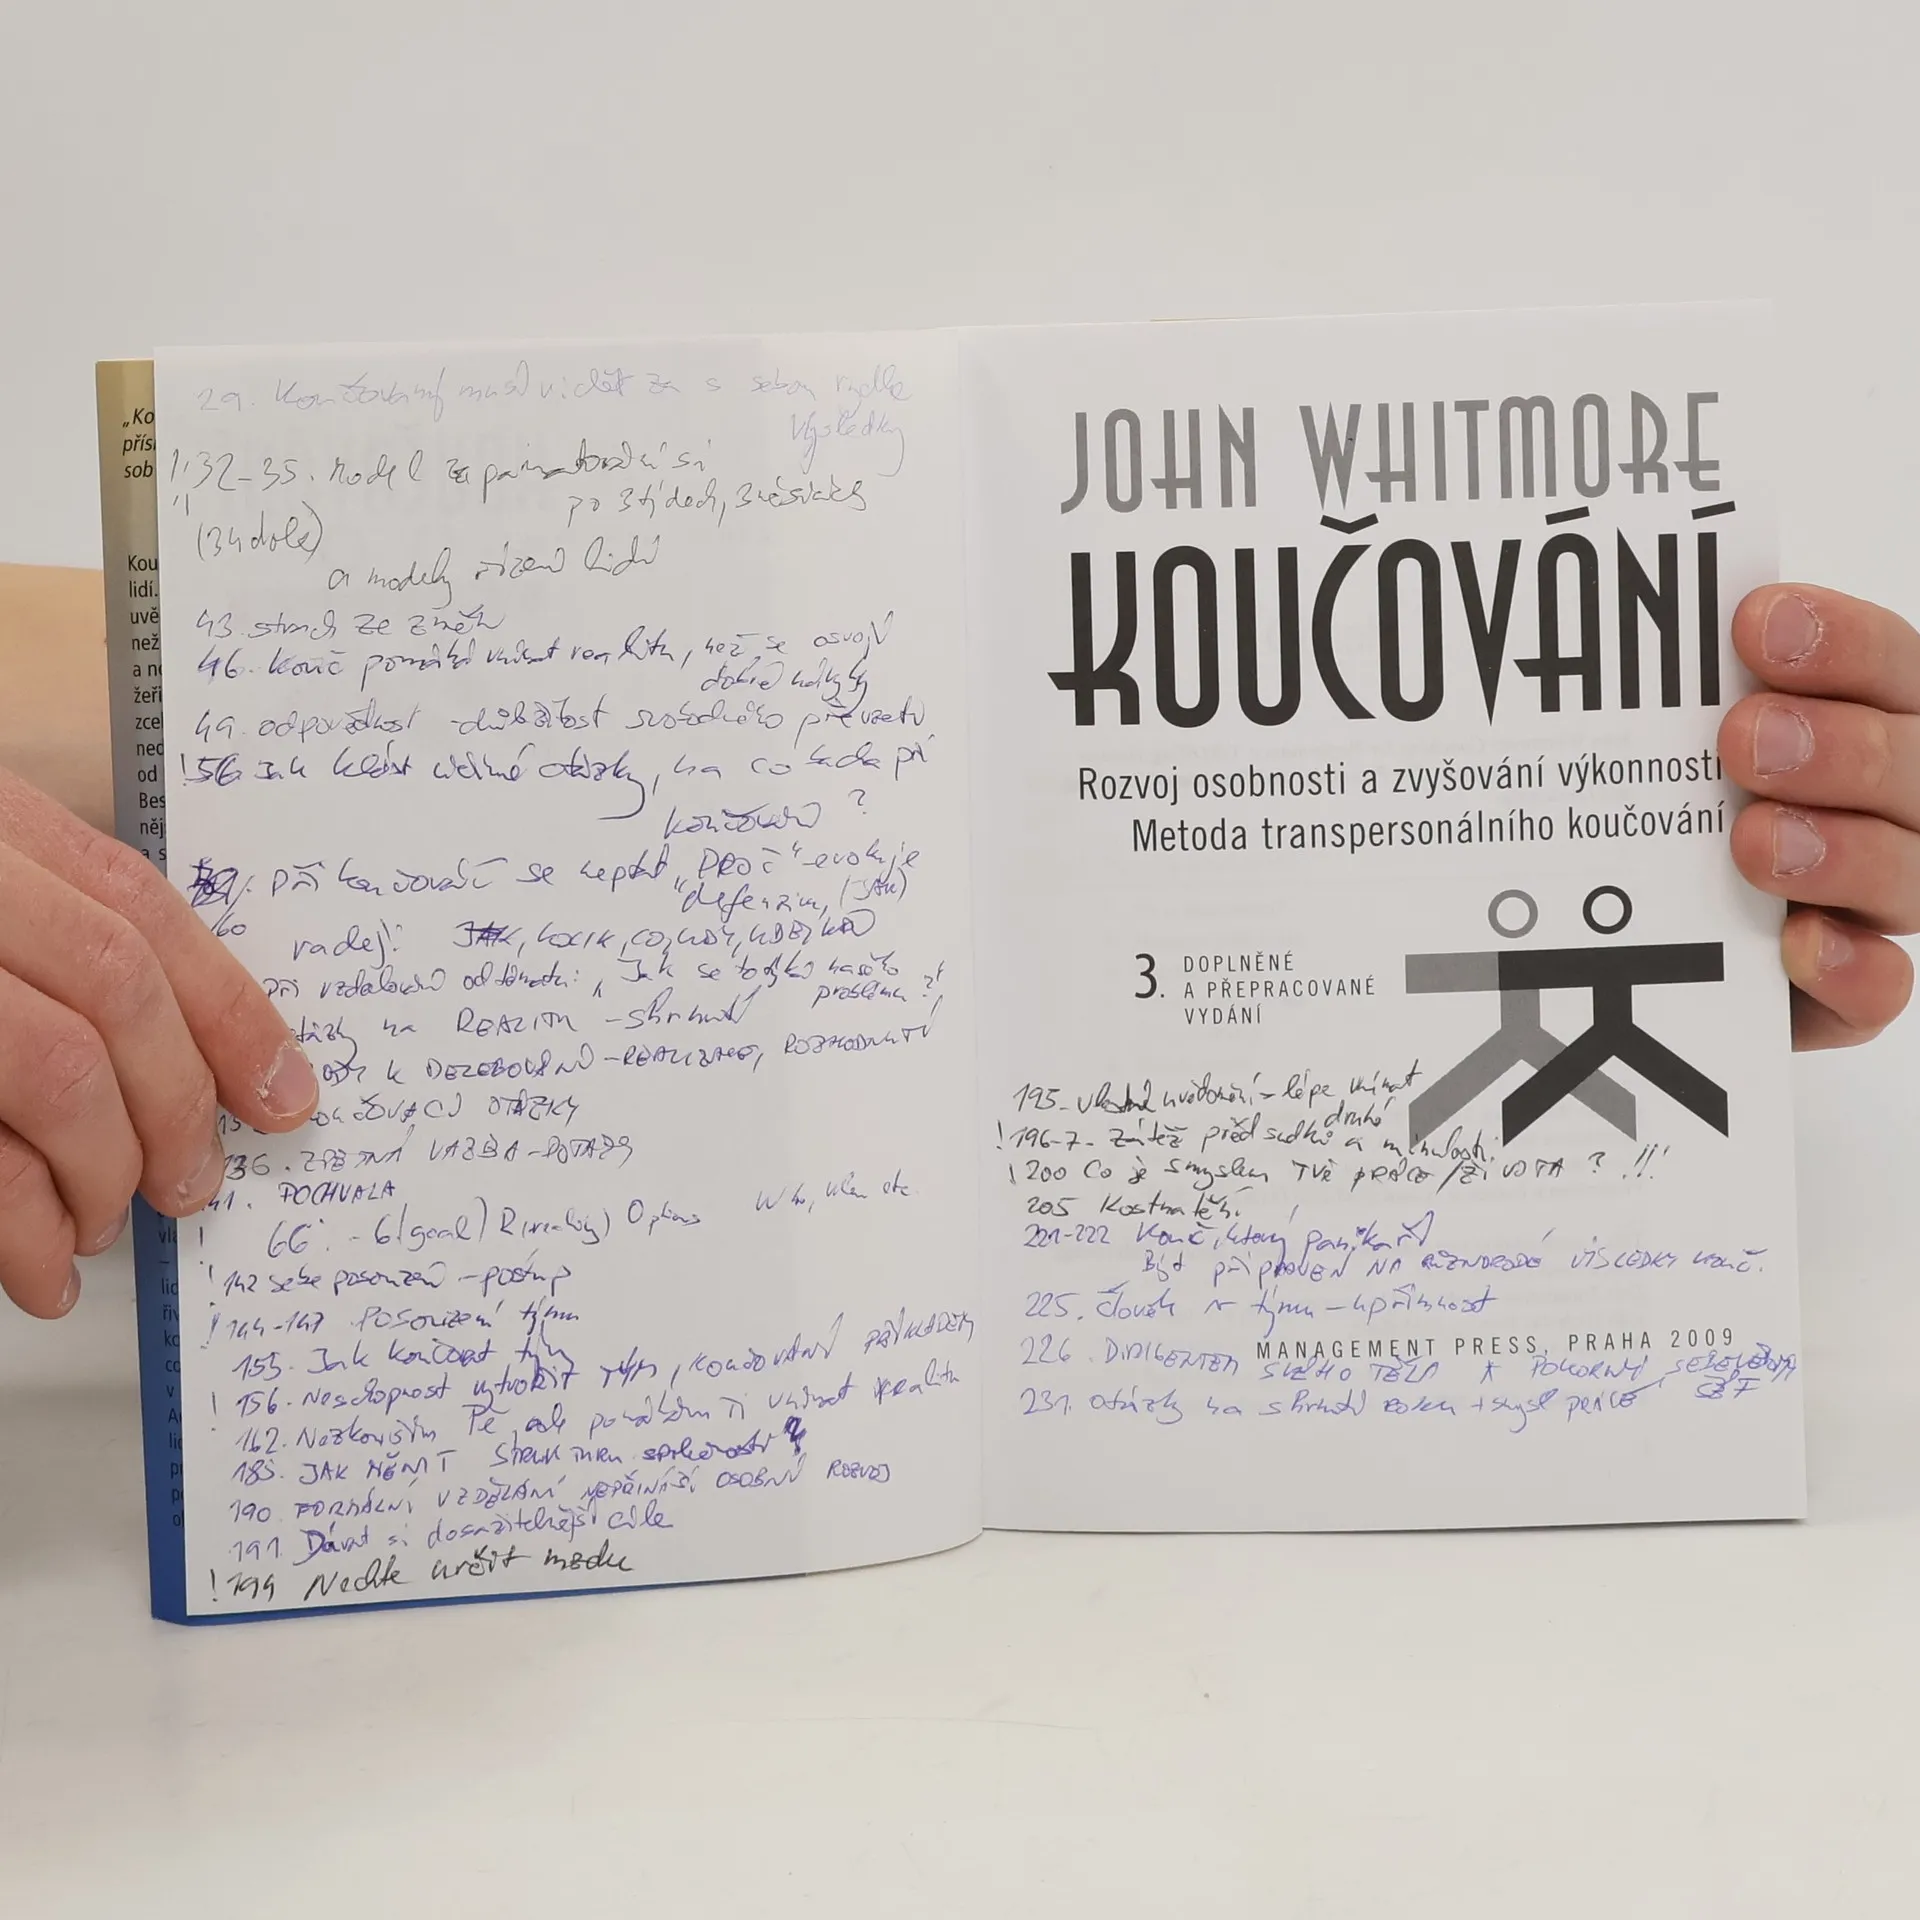 „Ko
přís
sob
Kou
lidí.
uvě
než
a ne
žeři
zce
ned
od
Bes
něj
a s
29. Koučovaný musí vidět za s sebou rychle
výsledky
!32-35. Model zapamatování si
po 3 týdech, 3 měsících
(34 dole)
a modely řízení lidí
43. strach ze změn
46. Kouč pomáhá vnímat realitu, než se osvojí
dobré návyky
49. odpovědnost - důležitost svobodného převzetí
!56 Jak klást účinné otázky, na co
koučování ?
60
při koučování se neptat „PROČ" evokuje
defenzivu, (JAK)
raději: JAK, KOLIK, CO, KDY, KDE, KDO
při vzdalování od tématu: „Jak se to týká našeho
problému ?"
na REALITU - shrnutí
K - , ROZHODNUTÍ
OTÁZKY
136. ZPĚTNÁ VAZBA - POTAZY
41. POCHVALA
! 66. - G(goal) R(reality) Options Who, When etc.
! 142 sebe posouzení - postup
! 144-147 Posouzení týmu
153. Jak koučovat tým
! 156. Neschopnost vytvořit tým, koučování příkladem
162. Nezkouším Tě, ale pomáhám Ti vnímat realitu
185. JAK MĚNIT strukturu společnosti
190 FORMÁLNÍ VZDĚLÁNÍ NEPŘINÁŠÍ OSOBNÍ ROZVOJ
191. Dávat si dosažitelnější cíle
! 194 Nechte určit mzdu
JOHN WHITMORE
KOUČOVÁNÍ
Rozvoj osobnosti a zvyšování výkonnosti
Metoda transpersonálního koučování
3. DOPLNĚNÉ
A PŘEPRACOVANÉ
VYDÁNÍ
195 - vlastní uvědomění = lépe vnímat
druhé
! 196-7 - Zátěž předsudků a minulosti
! 200 Co je smyslem TVÉ PRÁCE / ŽIVOTA ? !!!
205 Kostnatění
221-222 Kouč, který panikaří
Být PŘIPRAVEN NA RŮZNORODÉ VÝSLEDKY KOUČ.
225. Člověk v týmu - upřímnost
MANAGEMENT PRESS, PRAHA 2009
226. DIRIGENTEM SVÉHO TĚLA X POKORNÝ,
231. otázky na shrnutí roku + smysl PRÁCE